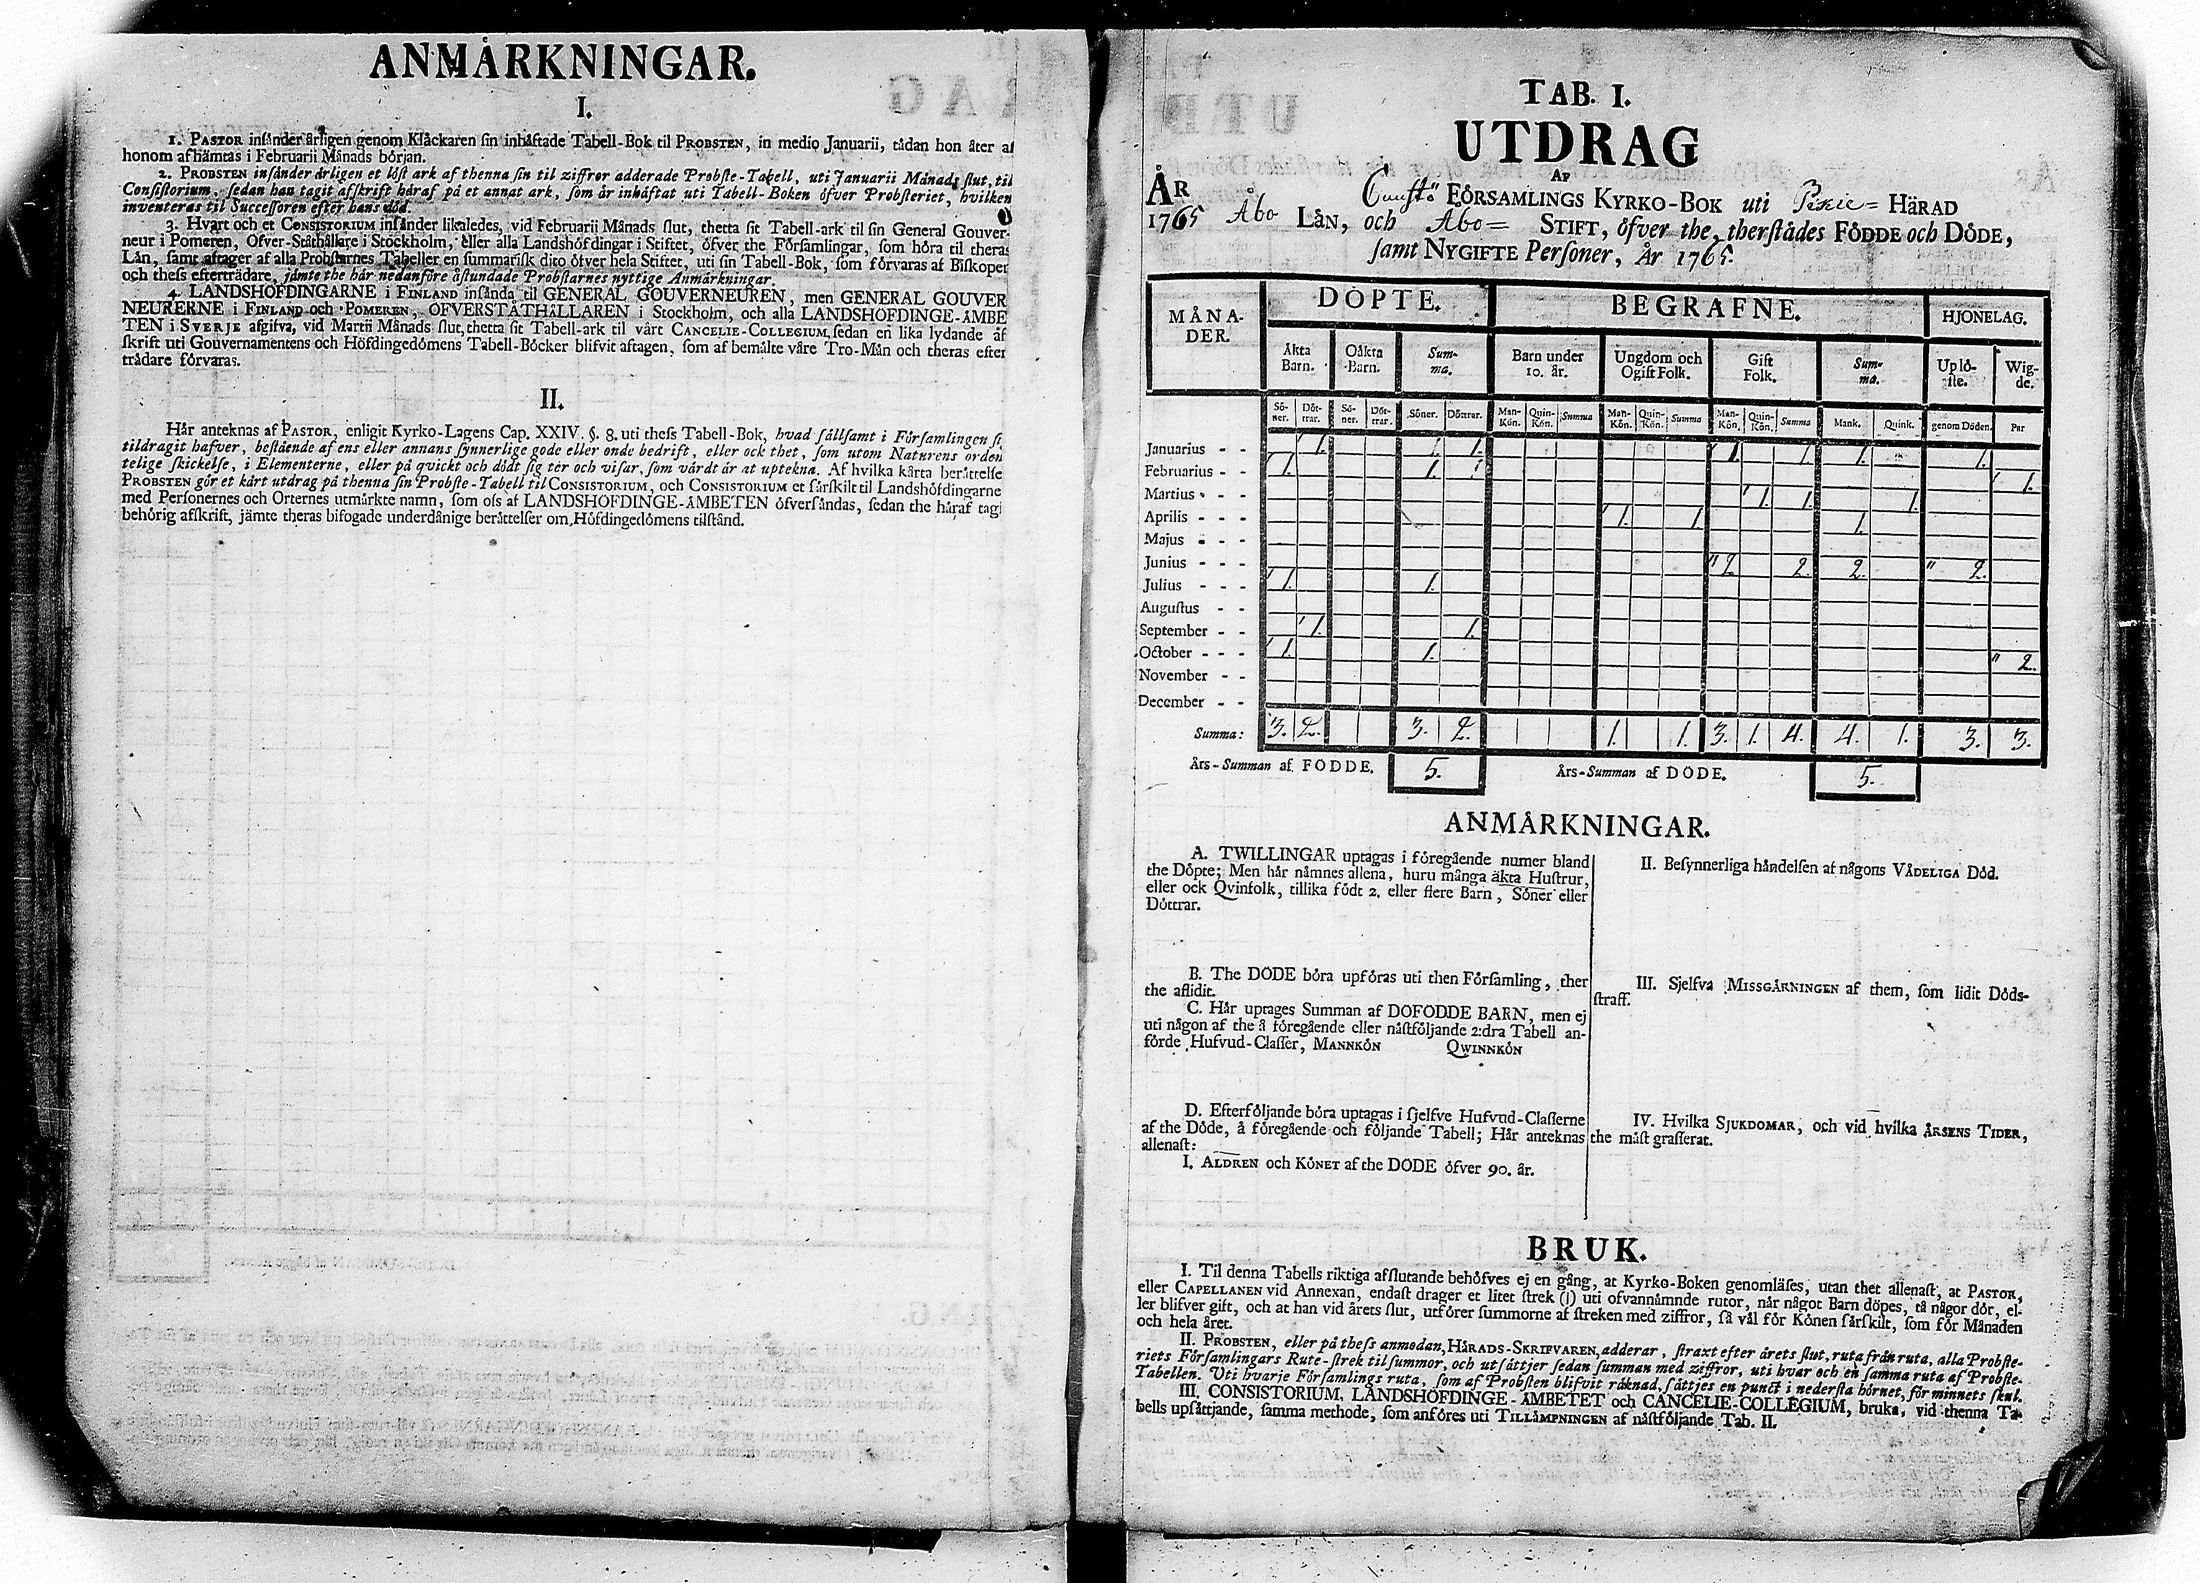 ANMÅRKNINGAR.
I.
1. PASTOR insånder årligen genom Klåckaren sin inhåftade Tabell-Bok til PROBSTEN, in medio Januarii, tådan hon åter af
honom afhåmtas i Februarii Månads början.
2. PROBSTEN insånder årligen et löst ark af thenna sin til ziffror adderade Probste-Tabell, uti Januarii Månads slut, til
Consistorium, sedan han tagit afskrift håraf på et annat ark, som år inhåftat uti Tabell-Boken öfver Probsteriet, hvilken
inventeras til Successoren efter hans död.
3. Hvart och et CONSISTORIUM insånder likaledes, vid Februarii Månads slut, thetta sit Tabell-ark til sin General Gouver-
neur i Pomeren, Öfver-Ståthållare i Stockholm, eller alla Landshöfdingar i Stiftet, öfver the Församlingar, som höra til theras
Lån, samt aftager af alla Probstarnes Tabeller en summarisk dito öfver hela Stiftet, uti sin Tabell-Bok, som förvaras af Biskoper
och thess efterträdare, jåmte the hår nedanföre åstundade Probstarnes nyttige Anmårkningar.
4. LANDSHÖFDINGARNE i FINLAND insånda til GENERAL GOUVERNEUREN, men GENERAL GOUVER
NEURERNE i FINLAND och POMEREN, ÖFVERSTÅTHÅLLAREN i Stockholm, och alla LANDSHÖFDINGE-ÅMBE
TEN i SVERJE afgifva, vid Martii Månads slut, thetta sit Tabell-ark til vårt CANCELIE-COLLEGIUM, sedan en lika lydande af
skrift uti Gouvernamentens och Höfdingedömens Tabell-Böcker blifvit aftagen, som af bemålte våre Tro-Mån och theras efter
trådare förvaras.
II.
Hår anteknas af PASTOR, enligit Kyrko-Lagens Cap. XXIV. §. 8. uti thess Tabell-Bok, hvad sållsamt i Församlingen si
tildragit hafver, bestående af ens eller annans synnerlige gode eller onde bedrift, eller ock thet, som utom Naturens orden
telige skickelse, i Elementerne, eller på qvickt och dödt sig ter och visar, som vårdt år at uptekna. Af hvilka kårta beråttelse
PROBSTEN gör et kårt utdrag på thenna sin Probste-Tabell til CONSISTORIUM, och CONSISTORIUM et sårskilt til Landshöfdingarne
med Personernes och Orternes utmårkte namn, som oss af LANDSHÖFDINGE-ÅMBETEN öfversåndas, sedan the håraf tagi
behörig afskrift, jåmte theras bifogade underdånige beråttelser om Höfdingedömens tilstånd.
TAB. I.
UTDRAG
AF
ÅR FÖRSAMLINGS KYRKO-BOK uti HÄRAD
1765 Åbo LÅN, och Åbo= STIFT, öfver the, therstådes FÖDDE och DÖDE,
samt NYGIFTE Personer, År 1765.
MÅNA-DER. DÖPTE. BEGRAFNE. HJONELAG.
Åkta Barn. Oåkta Barn. Sum-ma. Barn under 10. år. Ungdom och Ogift Folk. Gift Folk. Sum-ma. Uplö-ste. Wig-de.
Sö-ner. Döt-trar. Sö-ner. Döt-trar. Söner. Döttrar. Man-Kön. Quin-Kön. Summa Man-Kön. Quin-Kön. Summa Man-Kön. Quin-Kön. Summa Mank. Quink. genom Döden. Par
Januarius - - 1. 1. 1. 1. 1. 1. 1.
Februarius - - 1. 1. 1.
Martius - - - 1. 1. 1.
Aprilis - - - 1. 1. 1.
Majus - - -
Junius - - - 2. 2. 2. 2.
Julius - - - 1. 1.
Augustus - -
September - - 1. 1.
October - - - 1. 1. 2.
November - -
December - -
Summa: 3. 2. 3. 2. 1. 1. 3. 1. 4. 4. 1. 3. 3.
Års-Summan af FÖDDE. 5. Års-Summan af DÖDE. 5.
ANMÅRKNINGAR.
A. TWILLINGAR uptagas i föregående numer bland
the Döpte; Men hår nåmnes allena, huru många åkta Hustrur,
eller ock Qvinfolk, tillika födt 2. eller flere Barn, Söner eller
Döttrar.
B. The DÖDE böra upföras uti then Församling, ther
the aflidit.
C. Hår uptages Summan af DÖFÖDDE BARN, men ej
uti någon af the å föregående eller nåstföljande 2:dra Tabell an-
förde Hufvud-Classer, MANNKÖN QWINNKÖN
D. Efterföljande böra uptagas i sjelfve Hufvud-Classerne
af the Döde, å föregående och följande Tabell; Hår anteknas
allenast:
I. ÅLDREN och KÖNET af the DÖDE öfver 90. år.
II. Besynnerliga håndelsen af någons VÅDELIGA Död.
III. Sjelfva MISSGÅRNINGEN af them, som lidit Döds-
straff.
IV. Hvilka SJUKDOMAR, och vid hvilka ÅRSENS TIDER,
the måst grasserat.
BRUK.
I. Til denna Tabells riktiga afslutande behöfves ej en gång, at Kyrko-Boken genomlåses, utan thet allenast, at PASTOR,
eller CAPELLANEN vid Annexan, endast drager et litet strek (|) uti ofvannåmnde rutor, når något Barn döpes, tå någor dör, el-
ler blifver gift, och at han vid årets slut, utförer summorne af streken med ziffror, så vål för Könen sårskilt, som för Månaden
och hela året.
II. PROBSTEN, eller på thess anmodan, HÅRADS-SKRIFVAREN, adderar, straxt efter årets slut, ruta från ruta, alla Probste-
riets Församlingars Rute-strek til summor, och utsåttjer sedan summan med ziffror, uti hvar och en samma ruta af Probste-
Tabellen. Uti hvarje Församlings ruta, som af Probsten blifvit råknad, såttjes en punct i nedersta hörnet, för minnets skul.
III. CONSISTORIUM, LANDSHÖFDINGE-ÅMBETET och CANCELIE-COLLEGIUM, bruka, vid thenna Ta-
bells upsåttjande, samma methode, som anföres uti TILLÅMPNINGEN af nåstföljande Tab. II.